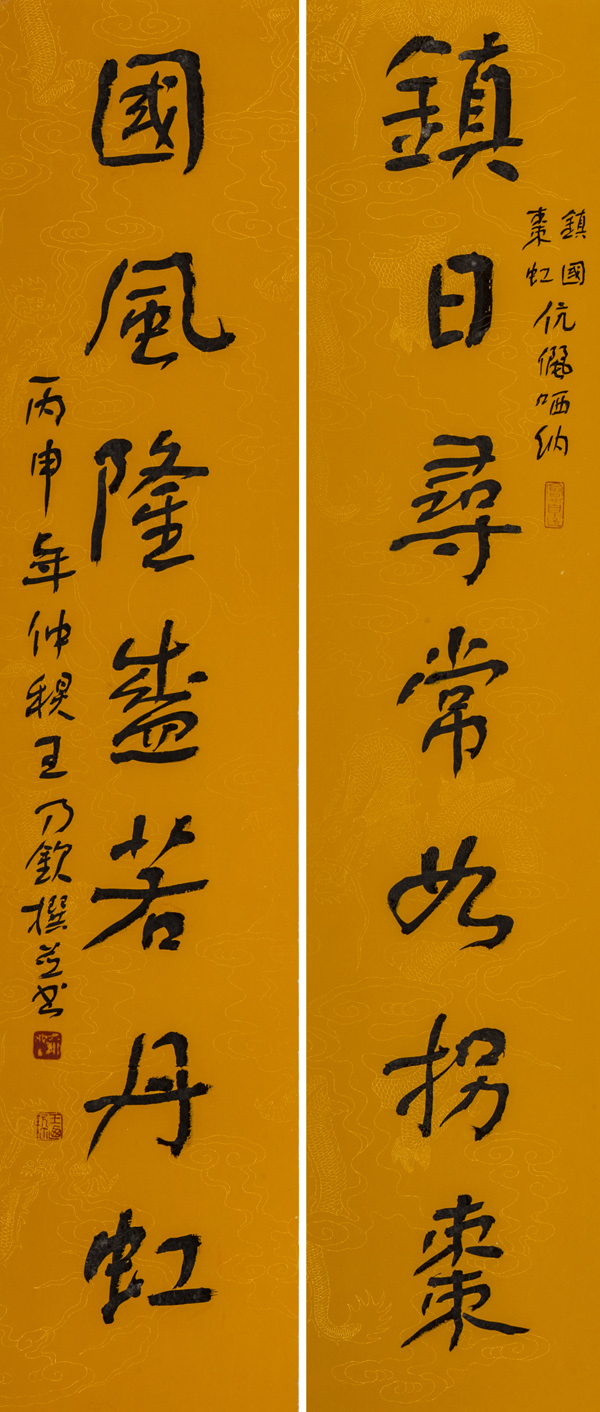 鎮日尋常如拐棗
鎮國
棗虹
伉儷哂納
國風隆盛若丹虹
丙申年仲穐王乃欽撰並書